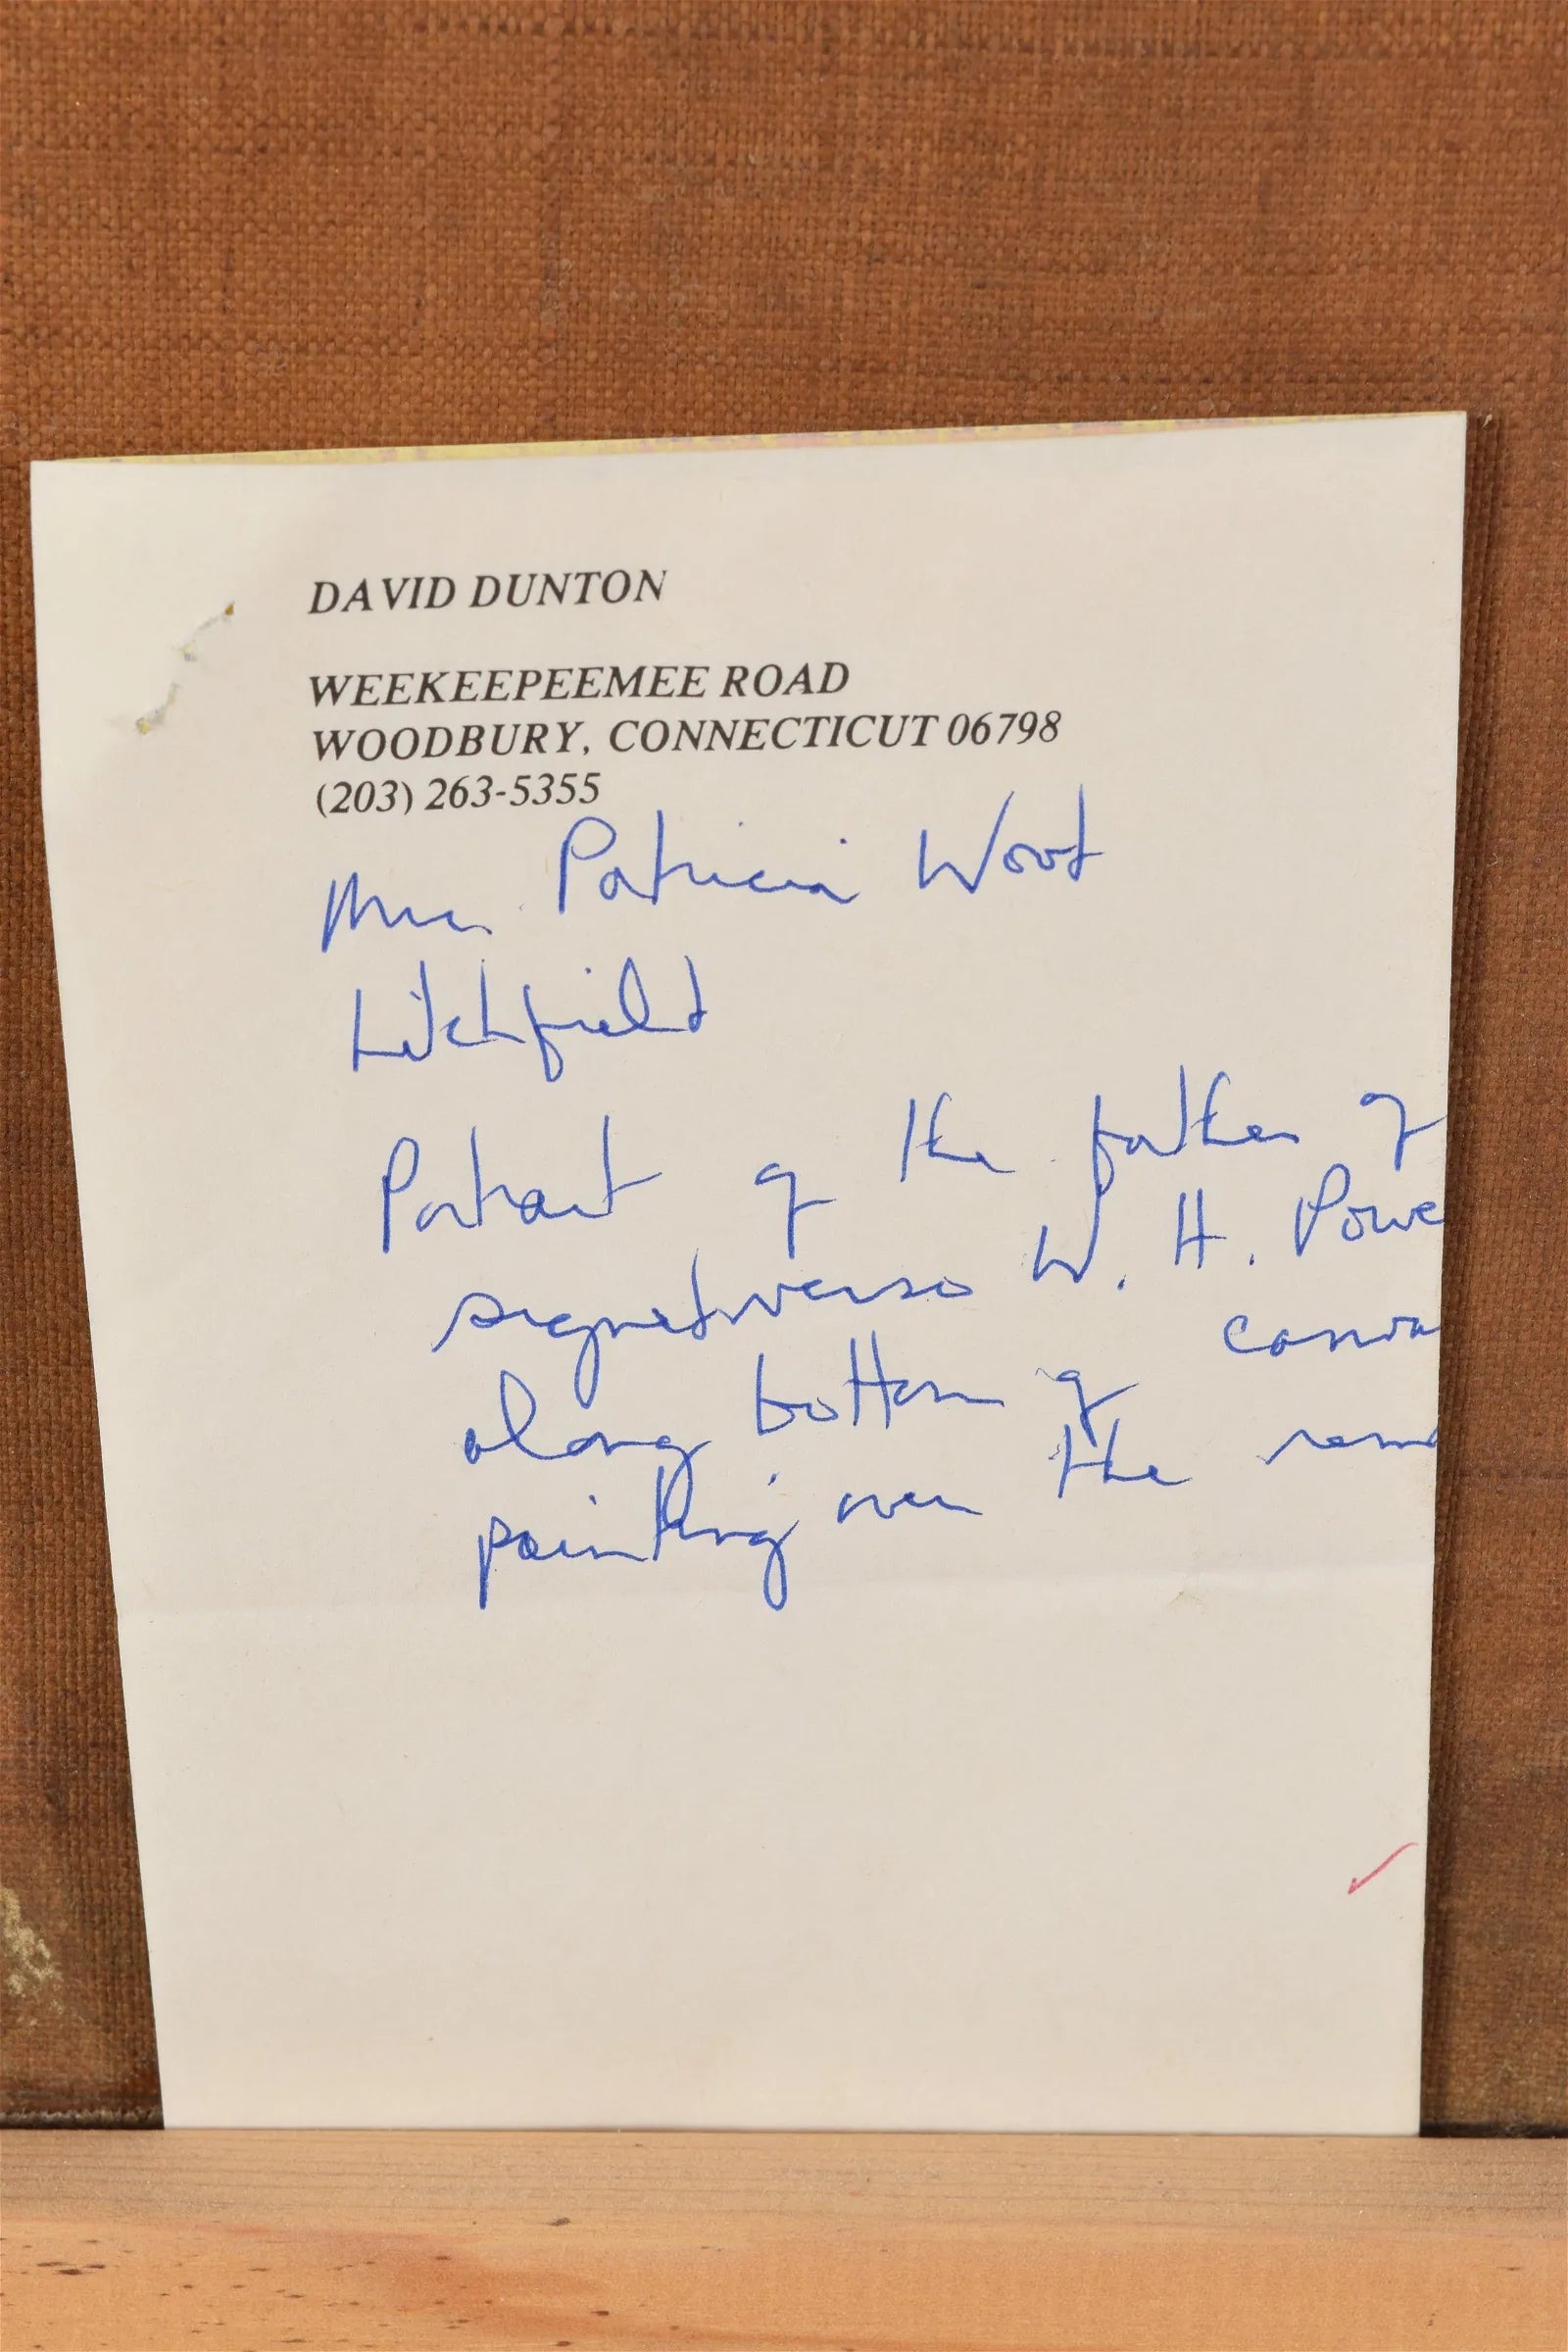 DAVID DUNTON
WEEKEEPEEMEE ROAD
WOODBURY, CONNECTICUT 06798
(203) 263-5355
Mrs. Patricia Wood
Litchfield
Portrait of the father of
signed verso W. H. Powe
along bottom of canva
painting over the